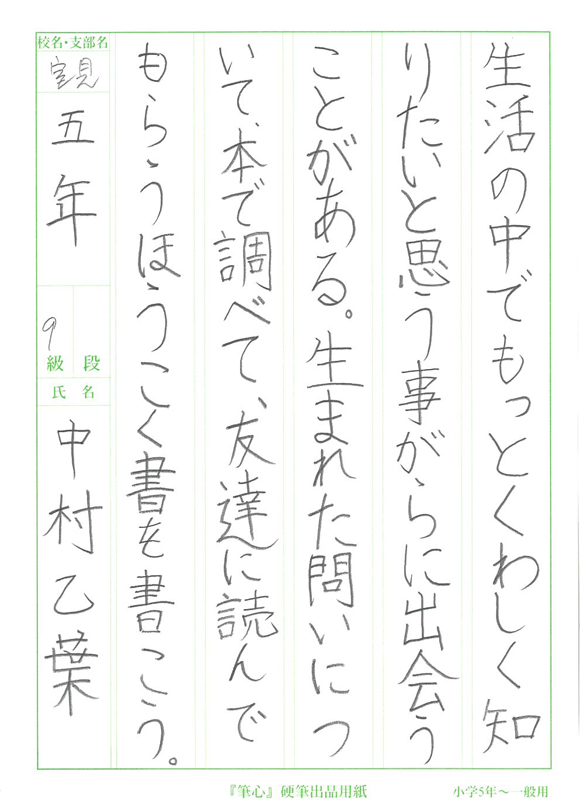 生活の中でもっとくわしく知
りたいと思う事がらに出会う
ことがある。生まれた問いにつ
いて、本で調べて、友達に読んで
もらうほうこく書を書こう。
校名・支部名
室見
五年
9
級 段
氏 名
中村乙葉
『筆心』硬筆出品用紙
小学5年〜一般用